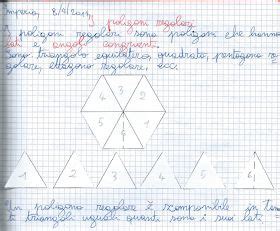 Imperia, 8/4/2014
I poligoni regolari
I poligoni regolari sono poligoni che hanno
lati e angoli congruenti.
Sono triangolo equilatero, quadrato, pentagono re
golare, esagono regolare, ecc.
3
4 2
5 1
6
1 2 3 4 5 6
Un poligono regolare è scomponibile in tan
ti triangoli uguali quanti sono i suoi lati.